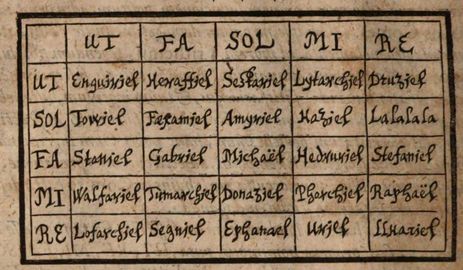 UT FA SOL MI RE
UT Enguiriel Heraffiel Lytarchiel Druziel
SOL Towiel Amyriel Haziel Lalalala
FA Staniel Gabriel Michaël Hedruriel Stefaniel
MI Walfariel Tumarchiel Donaziel Phorchiel Raphaël
RE Lofarchiel Segniel Ephanael Uriel